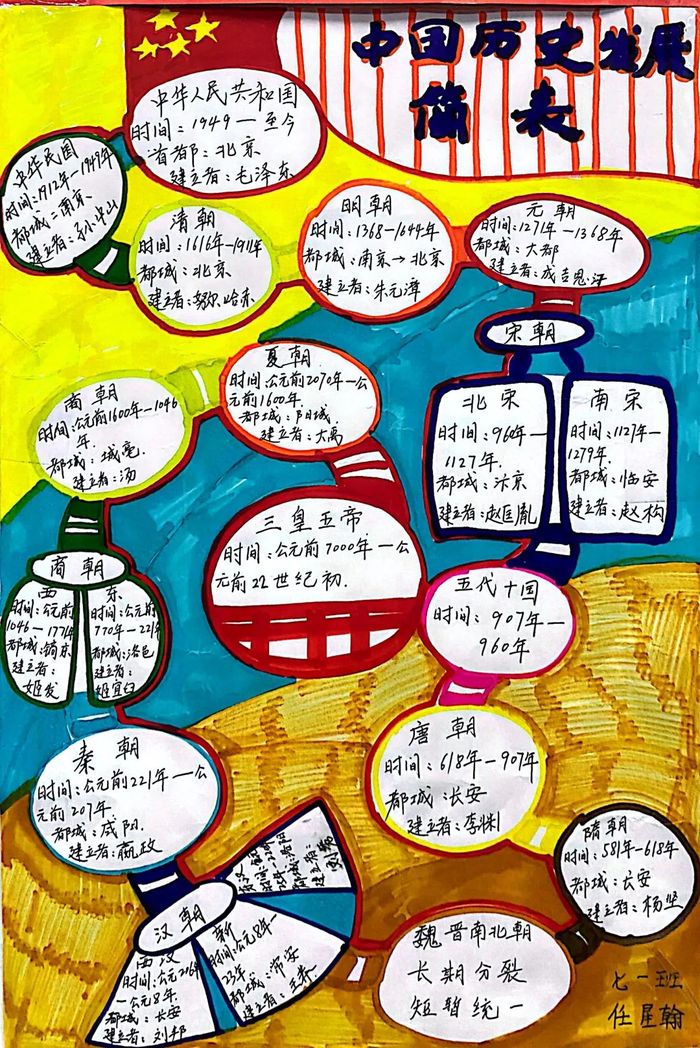 中国历史发展
简表
中华人民共和国
时间：1949—至今
首都：北京
建立者：毛泽东
中华民国
时间：1912年—1949年
都城：南京
建立者：孙中山
清朝
时间：1616年—1911年
都城：北京
建立者：努尔哈赤
明朝
时间：1368—1644年
都城：南京→北京
建立者：朱元璋
元朝
时间：1271年—1368年
都城：大都
建立者：成吉思汗
宋朝
北宋
时间：960年—
1127年.
都城：汴京
建立者：赵匡胤
南宋
时间：1127年—
1279年.
都城：临安
建立者：赵构
五代十国
时间：907年—
960年
唐朝
时间：618年—907年
都城：长安
建立者：李渊
隋朝
时间：581年—618年
都城：长安
建立者：杨坚
魏晋南北朝
长期分裂
短暂统一
夏朝
时间：公元前2070年—公
元前1600年.
都城：阳城
建立者：大禹
三皇五帝
时间：公元前7000年—公
元前22世纪初.
商朝
时间：公元前1600年—1046
年.
都城：城亳.
建立者：汤
商朝
西
时间：公元前
1046—771年
都城：镐京
建立者：
姬发
东
时间：公元前
770年—221年
都城：洛邑
建立者：
姬宜臼
秦朝
时间：公元前221年—公
元前207年.
都城：咸阳.
建立者：嬴政
汉朝
西汉
—公元8年.
都城：长安
建立者：刘邦
新
时间：公元8年—
23年.
都城：常安
建立者：王莽
七一班
任星翰